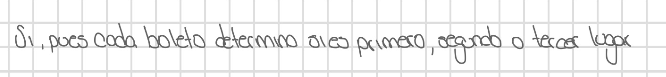 Si, pues cada boleto determina si es primero, segundo o tercer lugar